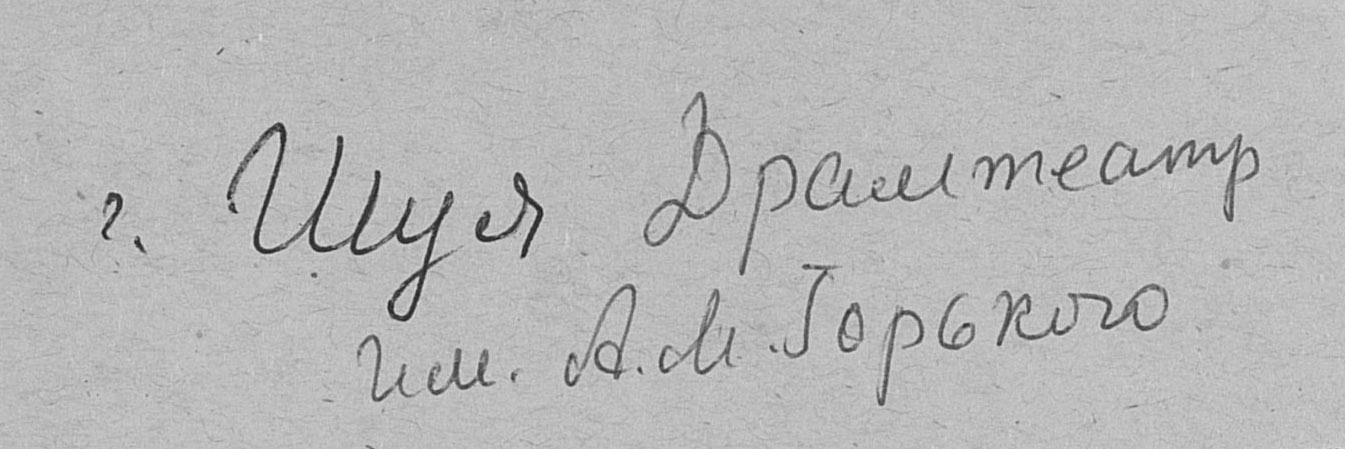 г. Шуя Драмтеатр
им. А.М.Горького